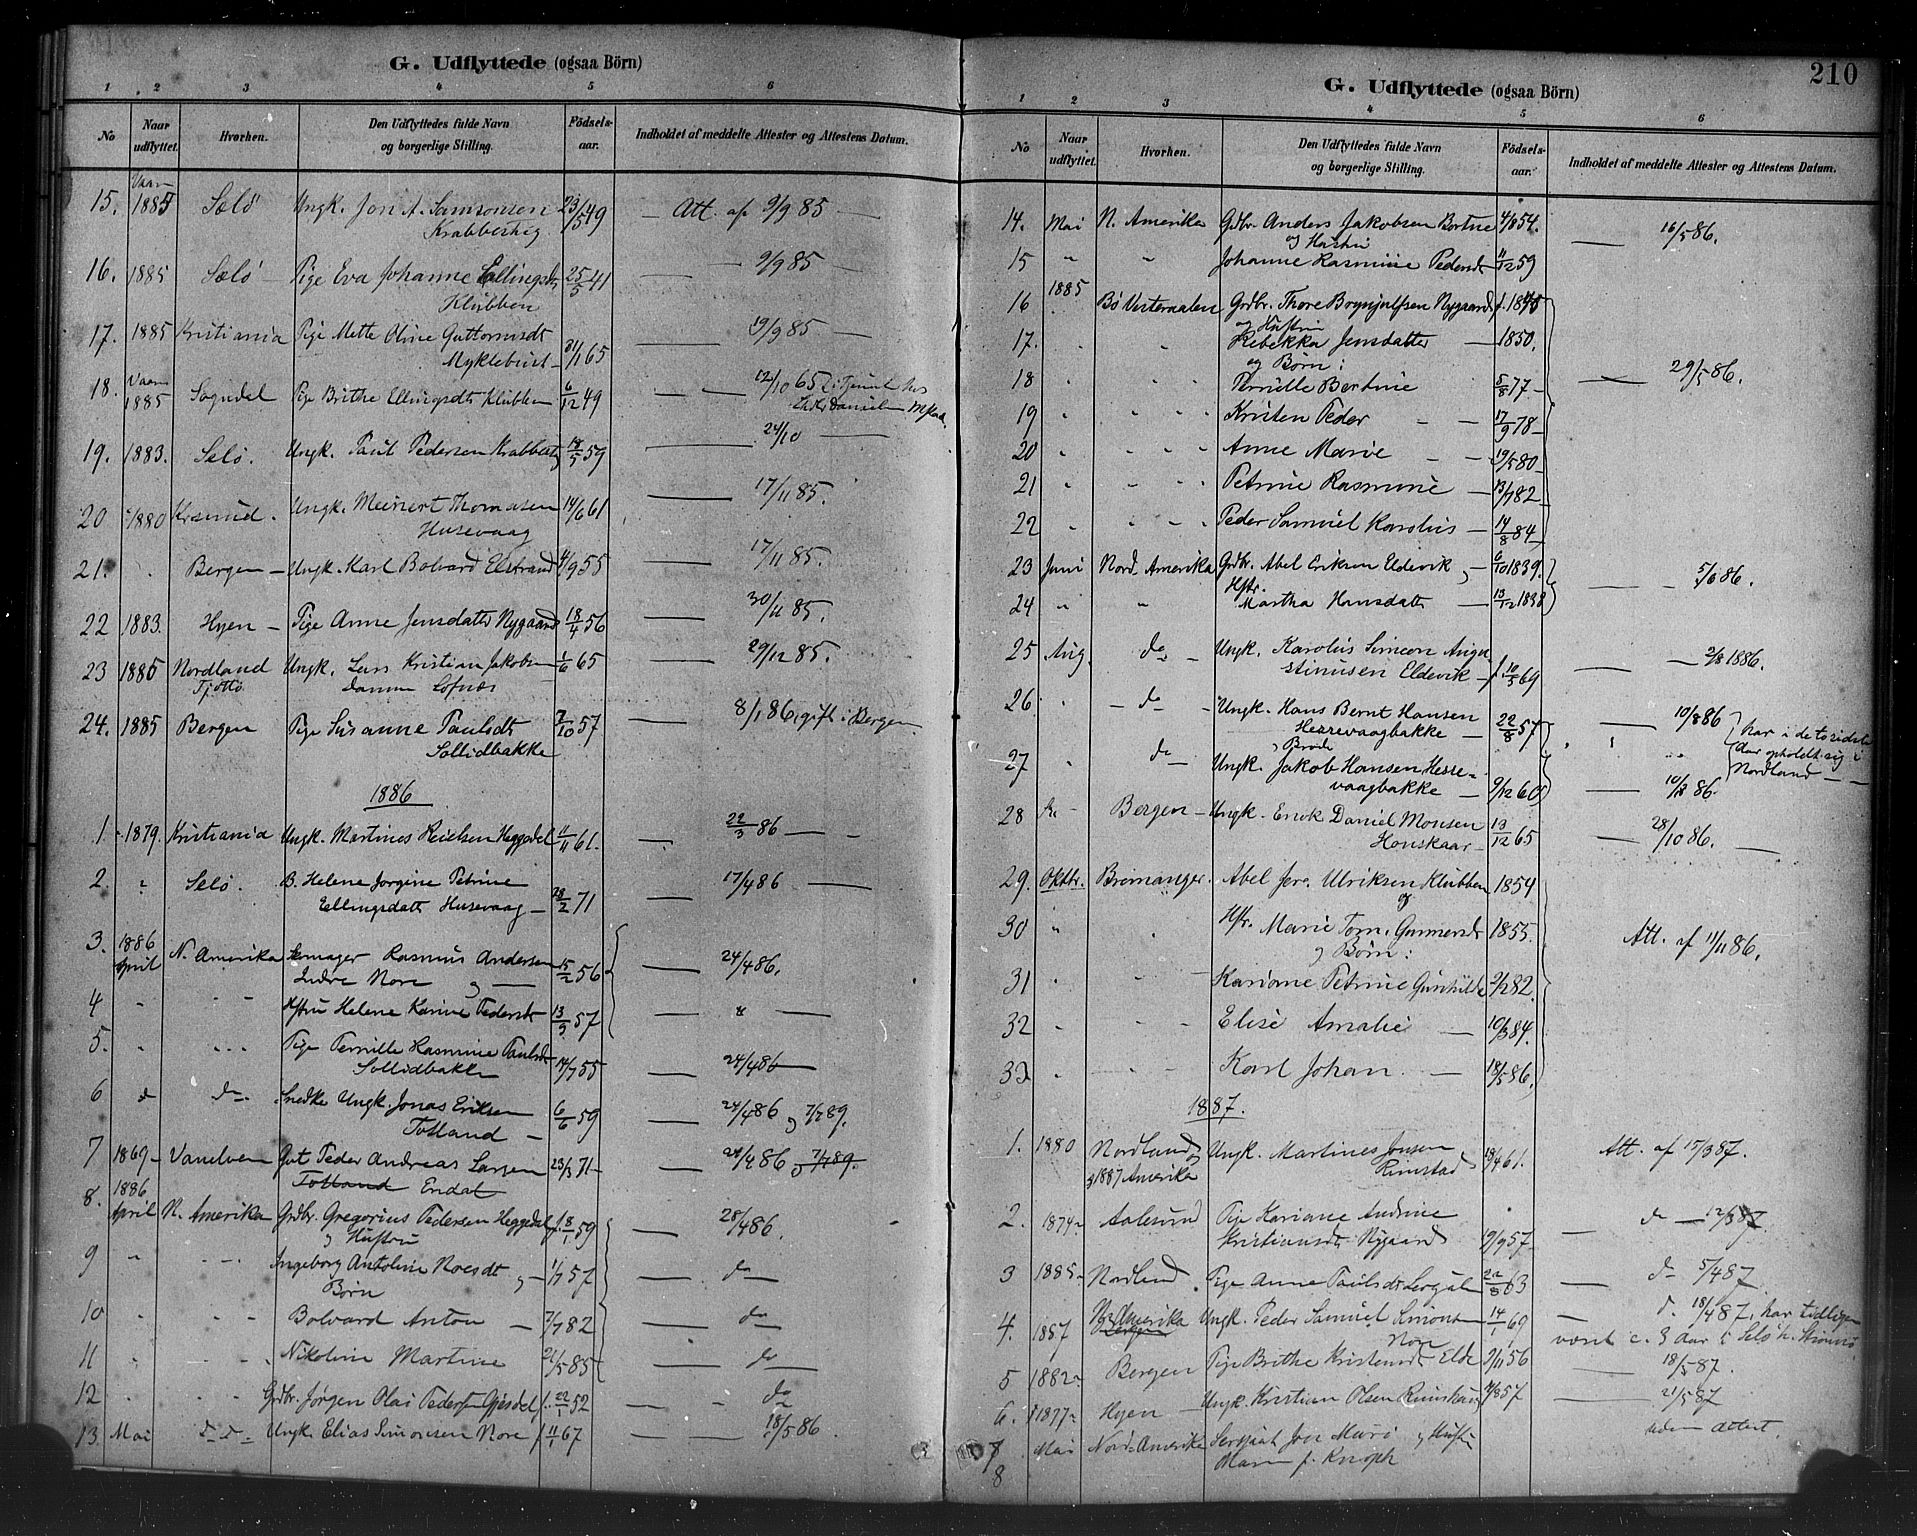 G. Udflyttede (ogsaa Börn)
1 2 3 4 5 6
No Naar udflyttet. Hvorhen. Den Udflyttedes fulde Navn og borgerlige Stilling. Födsels-aar. Indholdet af meddelte Attester og Attestens Datum.
15. Vaar 1885 Sælö Ungk. Jon A. Samsonsen 23/5 49 — Att. af 9/9 85 —
Krabbestig
16. 1885 Sælö — Pige Eva Johanne Ellingsdt. 25/5 41 — 9/9 85 —
Klubben
17. 1885 Kristiania Pige Mette Oline Guttormsdt — 19/9 85 —
Myklebust 31/1 65
18. Vaar 1885 Sogndal Pige Brithe Ellingsdt Klubben 6/12 49 — 12/10 65
19. 1883. Selö. Ungk. Paul Pedersen Krabbestig 14/5 59 — 24/10 —
20 1880 Krsund. Ungk. Meinert Thomasen 14/6 61 — 17/11 85.
Husevaag
21. Bergen — Ungk. Karl Bolvard Elstrand 4/9 55 — 17/11 85.
22 1883. Hyen — Pige Anne Jensdatter Nygaard 18/4 56 — 30/11 85.
23 1885 Nordland Ungk. Lars Kristian Jakobsen 1/6 65 — 29/12 85.
Tjöttö
24. 1885 Bergen Pige Susanne Paulsdt 7/10 57 — 8/1 86 gift i Bergen
Sollidbakke
1886
1. 1879. Kristiania Ungk. Martines Reielsen Heggedal 11/11 61. — 22/3 86 —
2. " Selö. B. Helene Jorgine Petrine — 17/4 86 —
Ellingsdatt Husevaag — 28/2 71
3. 1886 April N. Amerika Skomager Rasmus Andersen 15/2 56 — 24/4 86.
Indre Nore og —
4 " " Hstru Helene Karine Pedersdt 13/3 57 — " —
5. " " Pige Pernille Rasmine Paulsdt 14/7 55 — 24/4 86
Sollidbakke
6 d d Snedke Ungk. Jonas Eriksen 6/6 59 — 24/4 86 og 7/7 89.
Totland —
7 1869 — Vanelven Gut Peder Andreas Larsen 23/3 71 — 24/4 86 og 7/7 89.
Totland Endal
8. 1886 April N. Amerika Grdbr. Gregorius Pedersen Heggedal f. 8/1 59 — 28/4 86.
og Hustru
9 " " Ingeborg Antoline Moesdt og — 1/7 57 — do —
Børn
10 " " Bolvard Anton — 7/7 82 — do
11 " " Nikoline Martine 21/5 85 — do
12 " " Grdbr. Jørgen Olai Pedersen Gjesdal f. 22/1 52 — " do
13. Mai d d Ungk. Elias Simonsen Nore f 11/1 67 — 18/5 86.
210
G. Udflyttede (ogsaa Börn)
1 2 3 4 5 6
No Naar udflyttet. Hvorhen. Den Udflyttedes fulde Navn og borgerlige Stilling. Födsels-aar. Indholdet af meddelte Attester og Attestens Datum.
14. Mai N. Amerika Grdbr. Anders Jakobsen Bortne 4/8 54. — 16/5 86.
og Hustru
15 " " Johanne Rasmine Pedersdt 11/12 59
16 1885 Bö Vesteraalen Grdbr. Thore Brynjulfsen Nygaard f. 1845
og Hustru
17. " " Rebekka Jensdatter — 1850.
og Børn:
18 " " Pernille Bertine 5/8 77 — — 29/5 86.
19 " " Kristen Peder — 17/9 78 —
20 " " Anne Marie — 19/5 80 —
21 " " Petrine Rasmine — 13/7 82 —
22 " " Peder Samuel Karolus — 14/8 84 —
23 Juni Nord Amerika Grdbr. Abel Eriksen Eldevik og 6/10 1839. — 5/6 86.
Hstr.
24 " " Martha Hansdatt — 13/12 1838
25 Aug. do — Ungk. Karolus Simeon Augu-
stinusen Eldevik — f. 10/5 69 — 2/8 1886.
26 " — do — Ungk. Hans Bernt Hansen — 10/8 86
Hessevaagbakke — 22/8 57 har i de to sidste
og Broder
27 " do — Ungk. Jakob Hansen Hesse- Aar opholdt sig i
vaagbakke — 9/12 60 — 10/8 86. Nordland —
28 Bergen — Ungk. Enok Daniel Monsen 13/12 65 — 28/10 86. —
Honskaar —
29. Oktbr. Bremanger. Abel Ulriksen Klubben 1854
og
30 " " Hstr. Marie Gunnersdt 1855. Att. af 11/11 86.
og Børn:
31 " " Kariane Petrine Gunhilda 2/12 82.
32 " " Elise Amalie — 10/3 84.
33 " " Karl Johan. — 18/5 86.
1887.
1. 1880 Nordland og Ungk. Martines Jonsen Att. af 15/3 87.
1887 Amerika Rimstad 13/4 61.
2. 1874 Aalesund Pige Kariane Andrine — d — 12/3 87
Kristiansdt Nygaard 19/9 57 —
3 1885 Nordland. Pige Anne Paulsdt 22/8 63 — d — 5/4 87.
4. 1887 N. Amerika Ungk. Peder Samuel Simonsen 14/1 69 — d. 18/4 87, har tidligere
Bergen Nore været c. 3 Aar i Selö
5 1882 Bergen Pige Brithe Kristensdt Elde 9/11 56 — 18/5 87.
6. 1877 Hyen — Ungk. Kristian Olsen 4/8 57 — 21/5 87
7 Mai Nord-Amerika Sersjant Jon Murö og Hustru uden Attest.
8 Maren f. Knoph